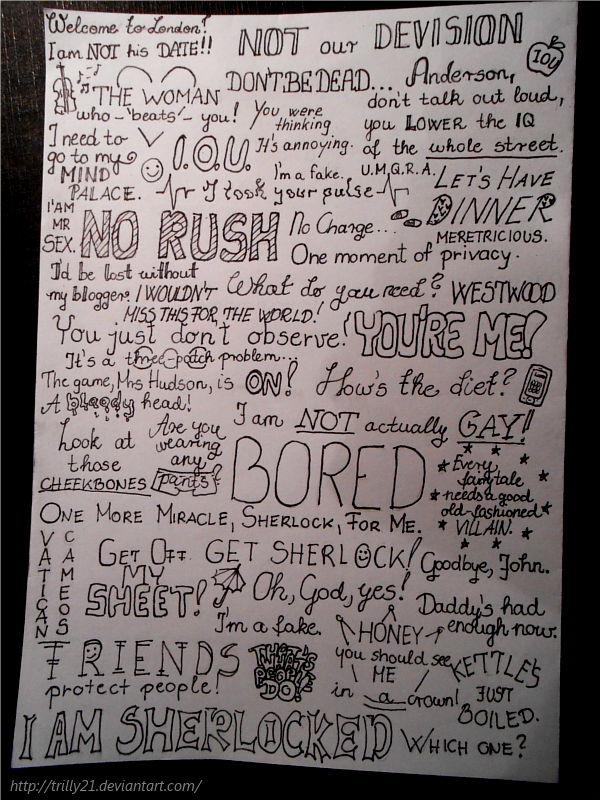 Welcome to London!
I am NOT his DATE!!
NOT our DEVISION
IOU
THE WOMAN
who - beats - you!
DON'T.BE DEAD...
Anderson,
don't talk out loud,
you LOWER the IQ
of the whole street.
You were
thinking.
It's annoying.
I need to
go to my
MIND
PALACE.
I.O.U.
I'm a fake.
U.M.Q.R.A.
I took your pulse
LET'S HAVE
DINNER
I'AM
MR
SEX.
NO RUSH
No Charge...
MERETRICIOUS.
One moment of privacy.
I'd be lost without
my blogger.
I WOULDN'T
MISS THIS FOR THE WORLD!
What do you need?
WESTWOOD
You just don't observe!
YOU'RE ME!
It's a three-patch problem...
The game, Mrs Hudson, is ON!
How's the diet?
A bloody head!
I am NOT actually GAY!
Look at
those
CHEEKBONES
Are you
wearing
any
pants?
BORED
Every
fairytale
needs a good
old-fashioned
VILLAIN.
ONE MORE MIRACLE, SHERLOCK, FOR ME.
VATICAN
CAMEOS
GET OFF
MY
SHEET!
GET SHERLOCK!
Goodbye, John.
Oh, God, yes!
Daddy's had
enough now.
I'm a fake.
HONEY
you should see
ME
in a crown!
FRIENDS
protect people!
THAT'S
WHAT
PEOPLE
DO!
KETTLE'S
JUST
BOILED.
I AM SHERLOCKED
WHICH ONE?
http://trilly21.deviantart.com/